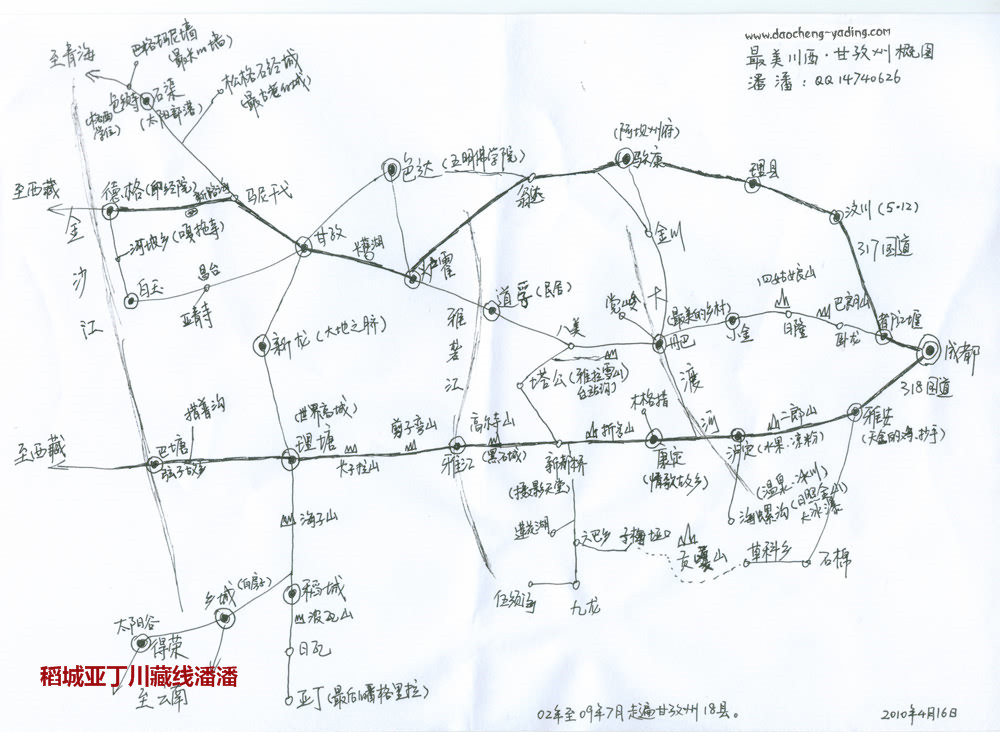 www.daocheng-yading.com
最美川西·甘孜州概图
潘潘：QQ14740626
至青海
巴格玛尼墙
(最长的墙)
松格石经城
(最古老的城)
色须寺
石渠
(太阳部落)
(阿坝州府)
马尔康
理县
汶川(5·12)
317国道
色达(五明佛学院)
翁达
至西藏
德格(印经院)
新路海
马尼干戈
甘孜
炉霍
金川
金沙江
河坡乡(嘎拖寺)
白玉
昌台
亚青寺
新龙(大地之脐)
道孚(民居)
雅砻江
八美
塔公
(雅拉雪山)
党岭
大渡河
丹巴
(最美的乡村)
小金
四姑娘山
日隆
巴朗山
卧龙
都江堰
成都
318国道
雅安
至西藏
措普沟
巴塘
弦子故乡
(世界高城)
理塘
剪子弯山
雅江
高尔寺山
(黑石城)
新都桥
(摄影天堂)
折多山
木格措
康定
(情歌故乡)
泸定(水果·凉粉)
二郎山
(温泉·冰川)
(日照金山)
大冰瀑
海螺沟
海子山
莲花湖
六巴乡
子梅垭口
贡嘎山
草科乡
石棉
伍须海
九龙
乡城
(白房子)
稻城
波瓦山
日瓦
亚丁(最后的香格里拉)
太阳谷
得荣
至云南
稻城亚丁川藏线潘潘
02年至09年7月走遍甘孜州18县。
2010年4月16日